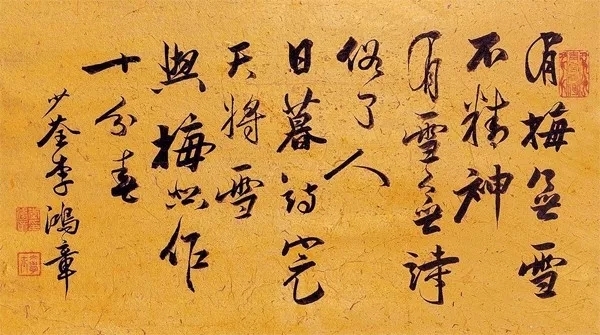 有梅無雪
不精神
有雪無詩
俗了人
日暮詩完
天將雪
與梅並作
十分春
少荃李鴻章